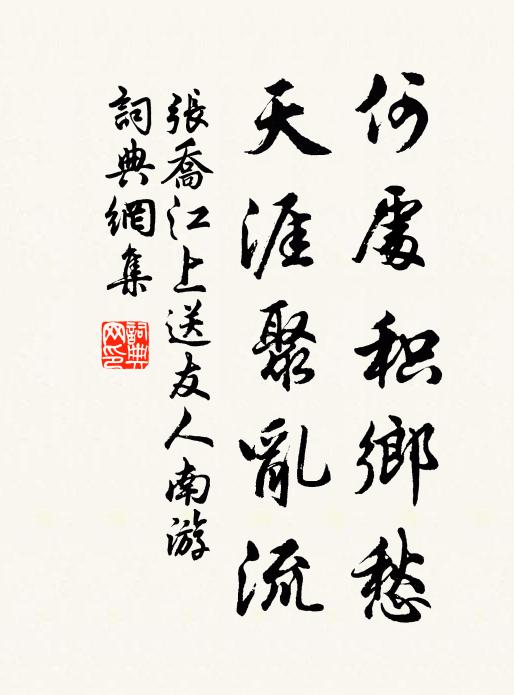 何處积鄉愁
天涯聚亂流
張喬江上送友人南游
詞典網集
詞典网印